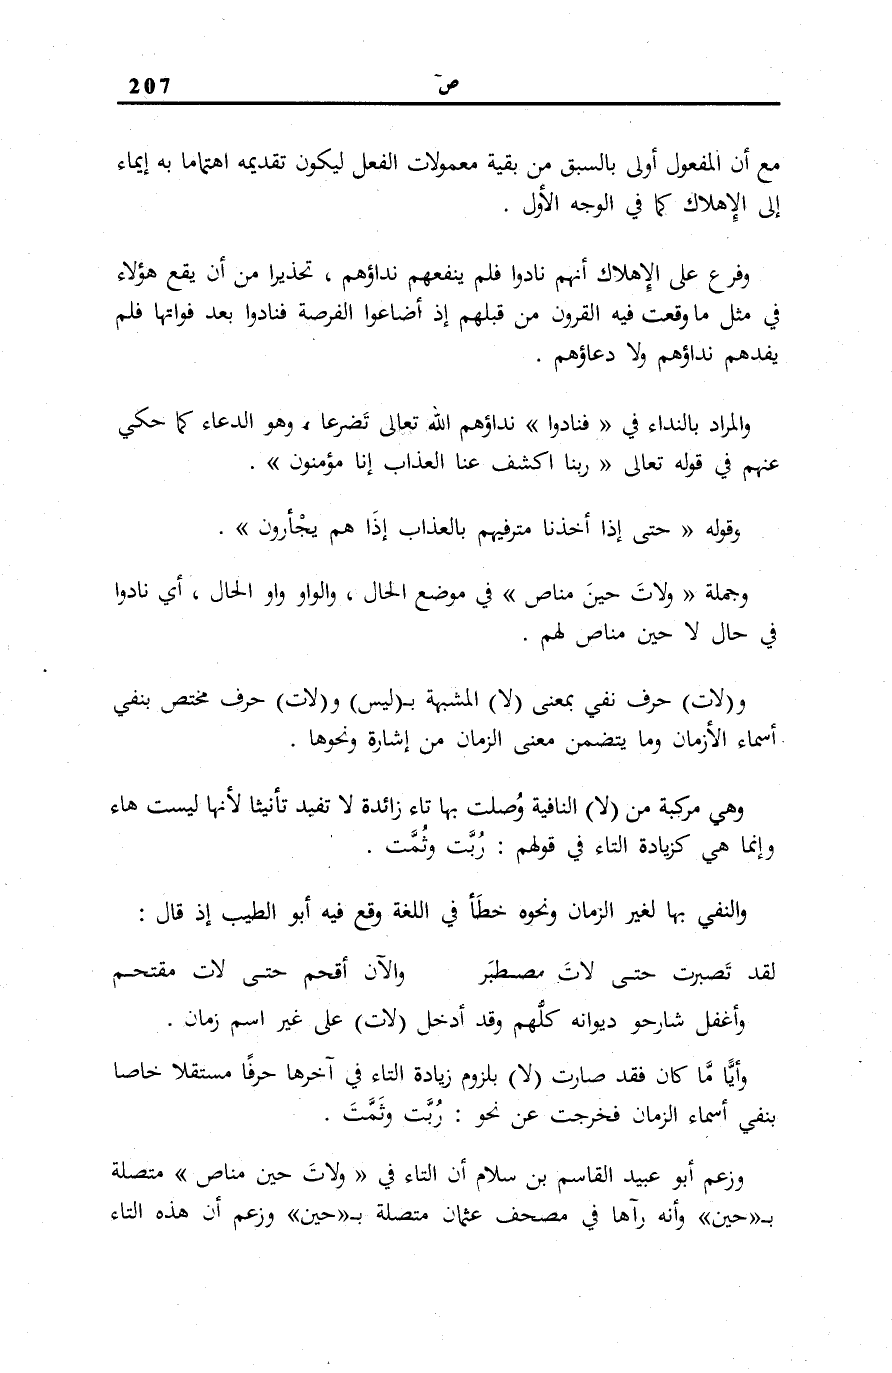 207 صۤ
مع أن المفعول أولى بالسبق من بقية معمولات الفعل ليكون تقديمه اهتماما به إيماء
إلى الإهلاك كما في الوجه الأول .
وفرع على الإهلاك أنهم نادوا فلم ينفعهم نداؤهم ، تحذيرا من أن يقع هؤلاء
في مثل ما وقعت فيه القرون من قبلهم إذ أضاعوا الفرصة فنادوا بعد فواتها فلم
يفدهم نداؤهم ولا دعاؤهم .
والمراد بالنداء في « فنادوا » نداؤهم الله تعالى تَضرعا ، وهو الدعاء كما حكي
عنهم في قوله تعالى « ربنا اكشف عنا العذاب إنا مؤمنون » .
وقوله « حتى إذا أخذنا مترفيهم بالعذاب إذَا هم يجْأرون » .
وجملة « ولاتَ حينَ مناص » في موضع الحال ، والواو واو الحال ، أي نادوا
في حال لا حين مناص لهم .
و(لات) حرف نفي بمعنى (لا) المشبهة بـ(ليس) و(لات) حرف مختص بنفي
أسماء الأزمان وما يتضمن معنى الزمان من إشارة ونحوها .
وهي مركبة من (لا) النافية وُصلت بها تاء زائدة لا تفيد تأنيثا لأنها ليست هاء
وإنما هي كزيادة التاء في قولهم : رُبَّت وثُمَّت .
والنفي بها لغير الزمان ونحوه خطَأ في اللغة وقع فيه أبو الطيب إذ قال :
لقد تَصبرت حتـى لاتَ مصـطبَر والآن أقحم حتـى لات مقتحـم
وأغفل شارحو ديوانه كلُّهم وقد أدخل (لات) على غير اسم زمان .
وأيًّا مَّا كان فقد صارت (لا) بلزوم زيادة التاء في آخرها حرفًا مستقلا خاصا
بنفي أسماء الزمان فخرجت عن نحو : رُبَّت وثَمَّتَ .
وزعم أبو عبيد القاسم بن سلام أن التاء في « ولاتَ حين مناص » متصلة
بـ«حين» وأنه رآها في مصحف عثمان متصلة بـ«حين» وزعم أن هذه التاء